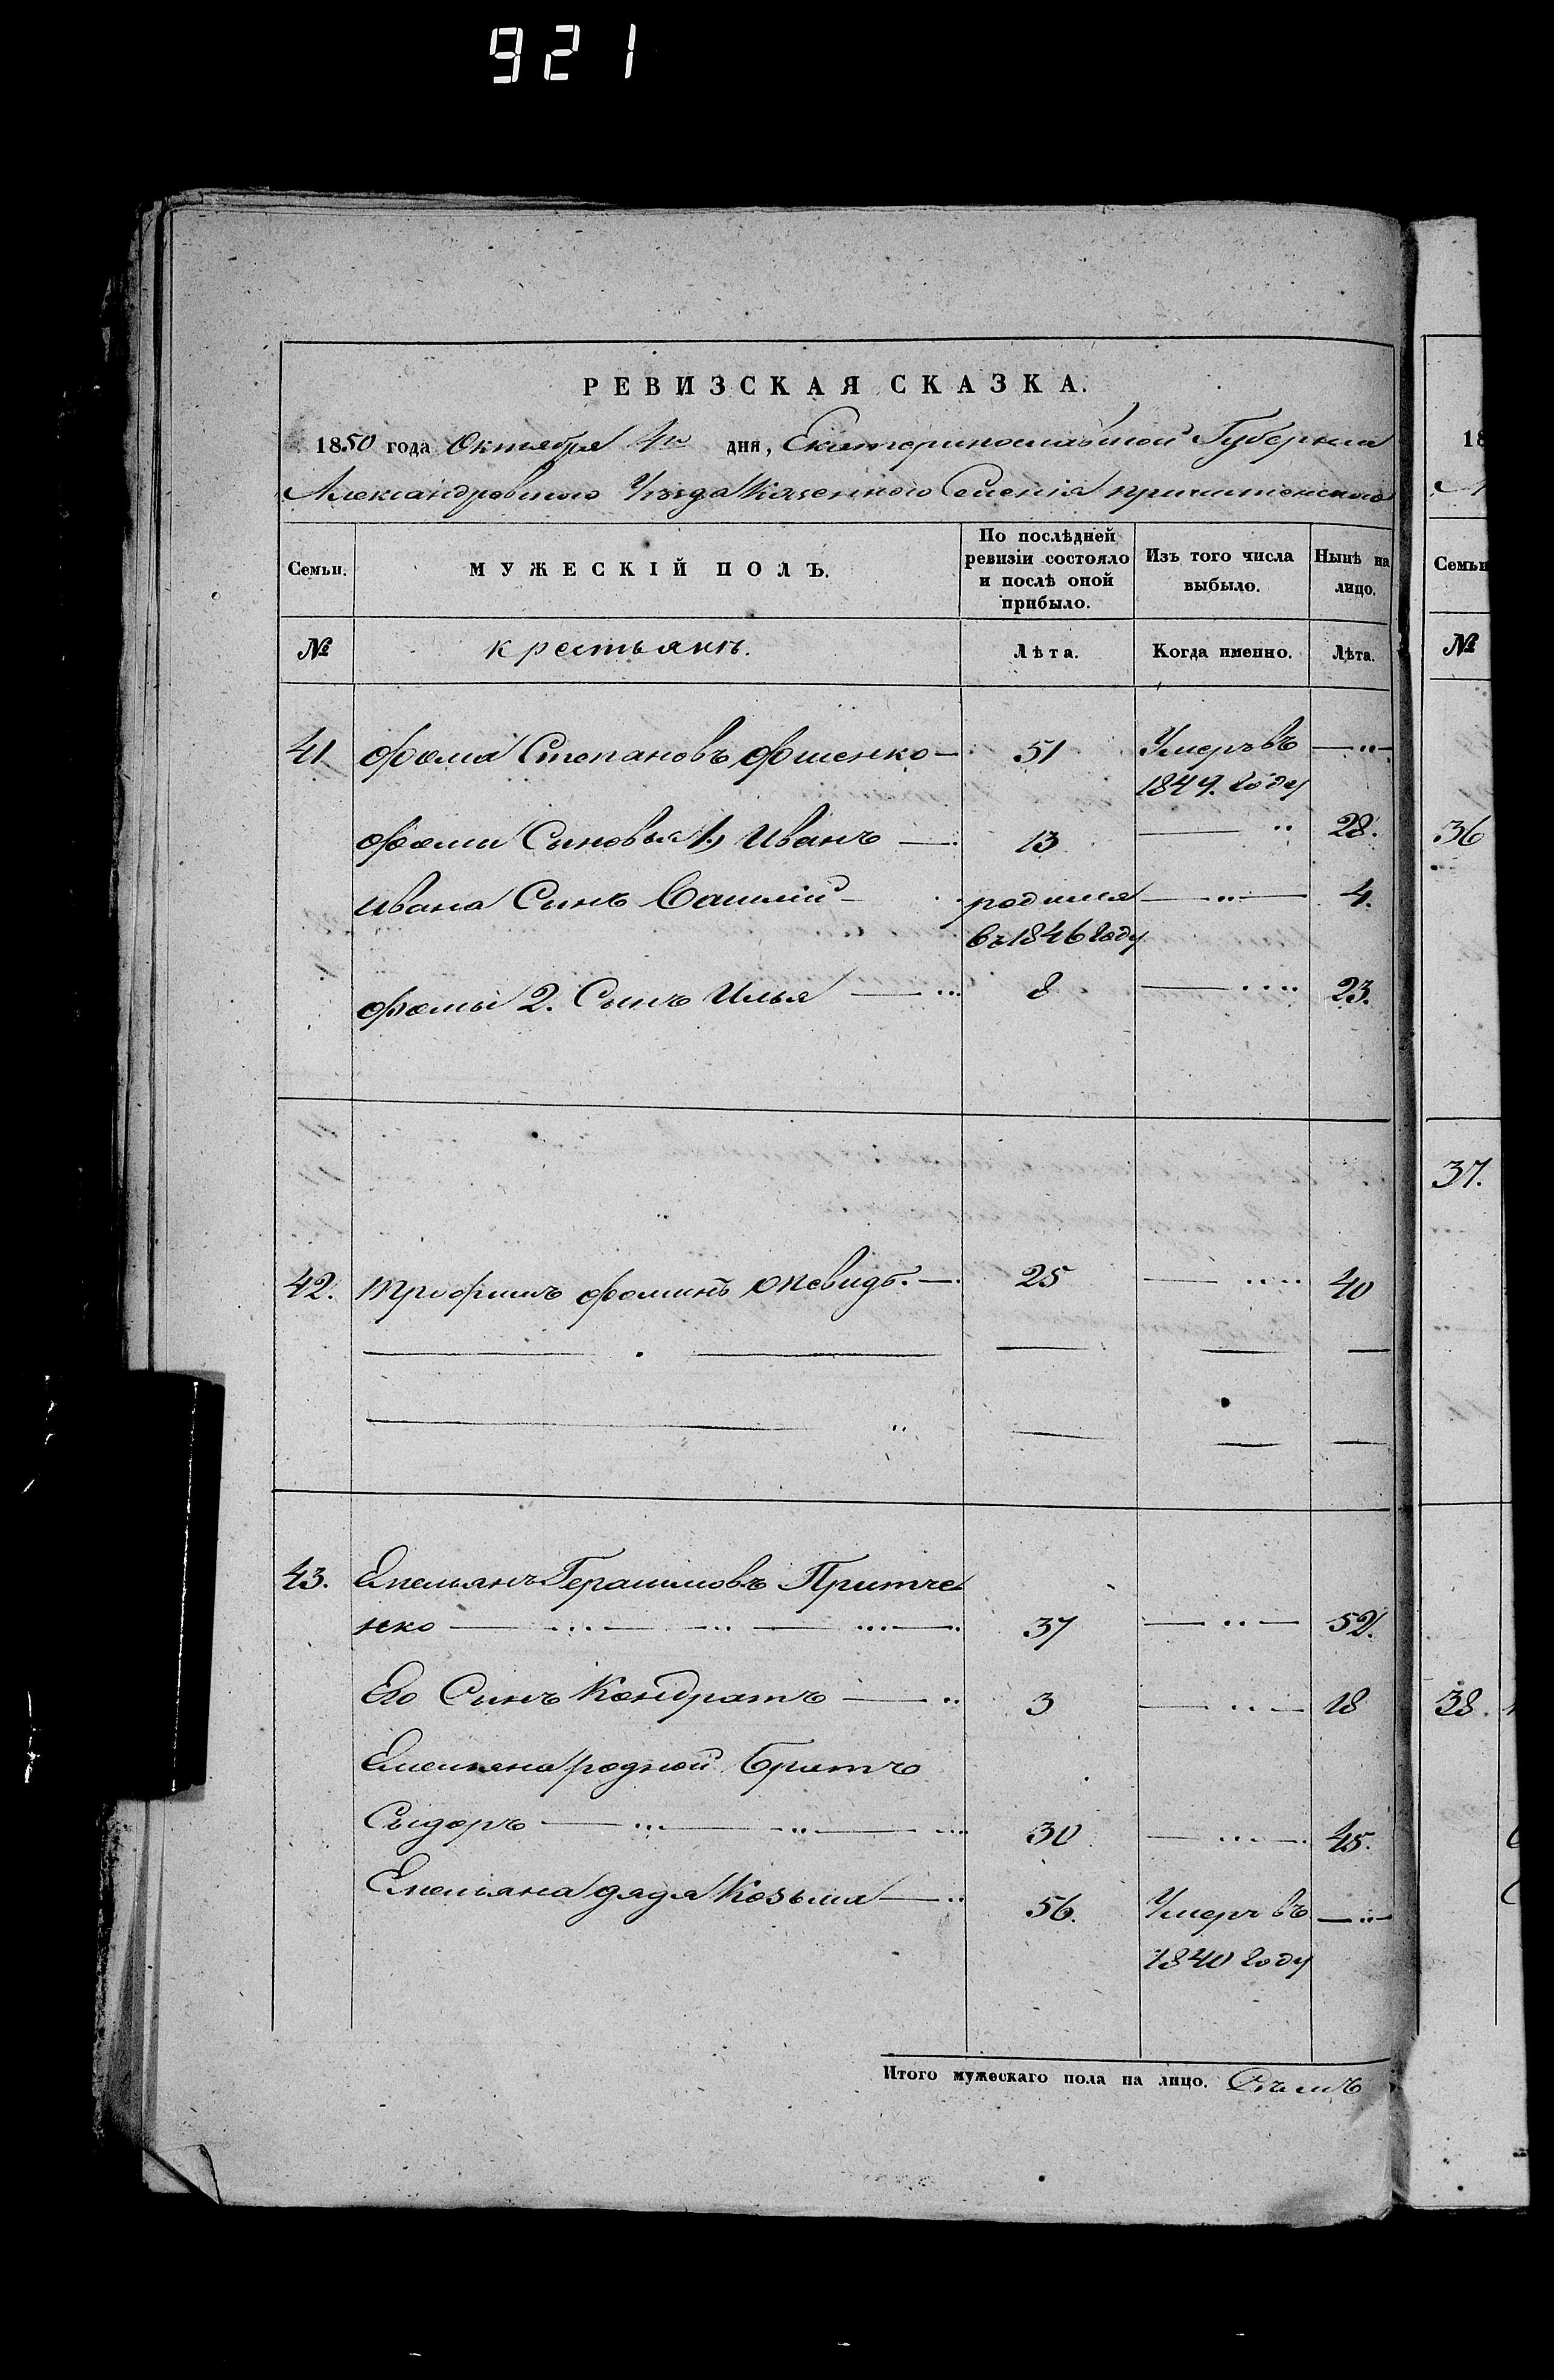 921
РЕВИЗСКАЯ СКАЗКА.
1850 года Октября 4го дня, Екатеринославской Губернии
Александровского Уезда Казенного Селения
Семьи. МУЖЕСКІЙ ПОЛЪ. По послѣдней ревизіи состояло и послѣ оной прибыло. Изъ того числа выбыло. Нынѣ на лицо.
№ крестьянъ. Лѣта. Когда именно. Лѣта.
41 Фома Степановъ Фоменко 51 Умеръ въ
1849. году
Фомы Сыновья 1, Иванъ 13 28.
Ивана Сынъ Василій родился 4.
въ 1846 году
Фомы 2. Сынъ Илья 8 23.
42. Трофимъ Фоминъ 25 40
43. Емельянъ Герасимовъ Притче
нко 37 52.
Его Сынъ Кондратъ 3 18
Емельяна родной братъ
Сыдоръ 30 45.
Емельяна дядя Козьма 56. Умеръ въ
1840 году
Итого мужескаго пола на лицо. Семь
18
Семьи
№
36
37.
38.